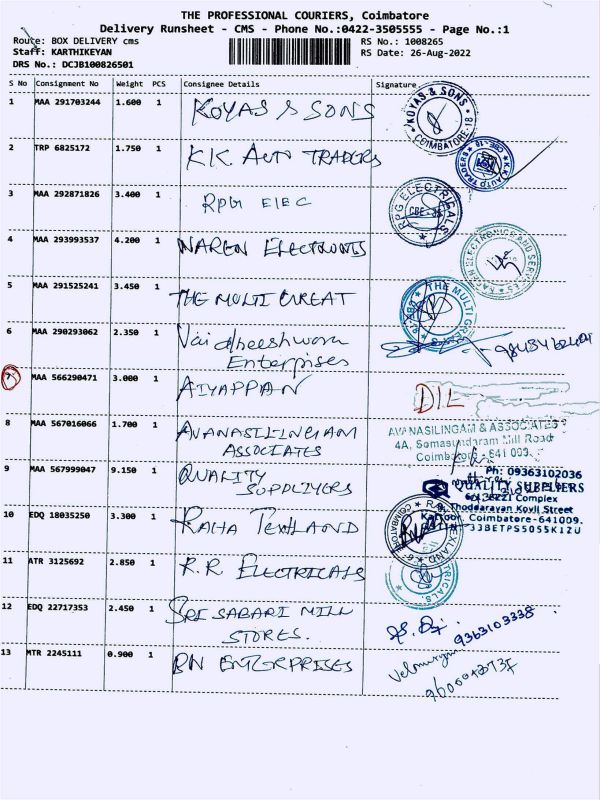 THE PROFESSIONAL COURIERS, Coimbatore
Delivery Runsheet - CMS - Phone No.:0422-3505555 - Page No.:1
Route: BOX DELIVERY cms
RS No.: 1008265
Staff: KARTHIKEYAN
RS Date: 26-Aug-2022
DRS No.: DCJB100826501
S No Consignment No Weight PCS Consignee Details Signature
1 MAA 291703244 1.600 1 KOYAS & SONS
KOYAS & SONS COIMBATORE-18
2 TRP 6825172 1.750 1 K.K. AUTO TRADERS
K.K. AUTO TRADERS CBE-18
3 MAA 292871826 3.400 1 RPG ELEC
RPG ELECTRICALS
4 MAA 293993537 4.200 1 NAREN ELECTRONICS
ELECTRONICS AND SERVICES
5 MAA 291525241 3.450 1 THE MULTI
THE MULTI
6 MAA 290293062 2.350 1 Vaidheeshwara
Enterprises
7 MAA 566290471 3.000 1 AIYAPPAN
DIL
8 MAA 567016066 1.700 1 AVANASILINGAM
ASSOCIATES
AVANASILINGAM & ASSOCIATES
4A, Somasundaram Mill Road
Coimbatore - 641 009.
9 MAA 567999047 9.150 1 QUALITY
SUPPLIYERS
Ph: 09363102036
QUALITY SUPPLIERS
Complex
Thoddarayan Kovil Street
Kattoor, Coimbatore-641009.
33BETPS5055K1ZU
10 EDQ 18035250 3.300 1 RAHA TEXLAND
11 ATR 3125692 2.850 1 R.R ELECTRICALS
12 EDQ 22717353 2.450 1 SRI SABARI MILL
STORES.
9363103338
13 MTR 2245111 0.900 1 BN ENTERPRISES
Velmurugan